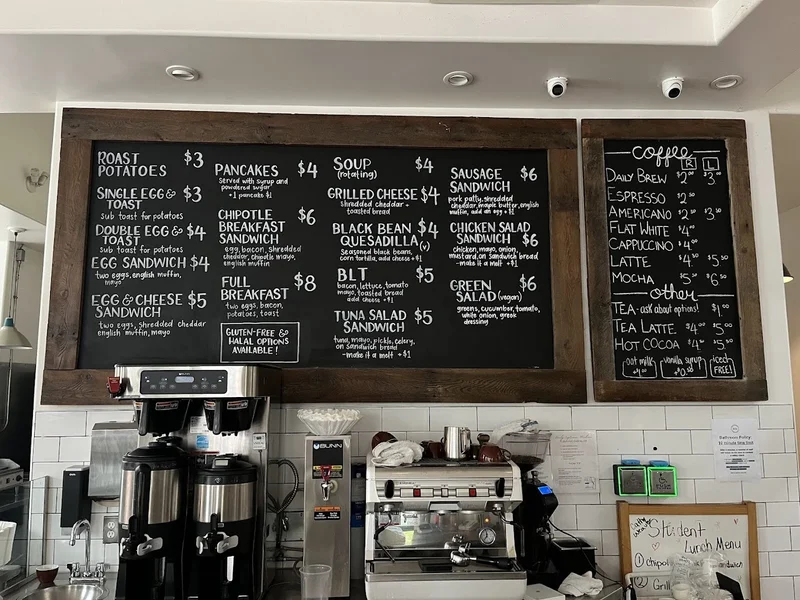 ROAST $3
POTATOES
SINGLE EGG & $3
TOAST
sub toast for potatoes
DOUBLE EGG & $4
TOAST
sub toast for potatoes
EGG SANDWICH $4
two eggs, english muffin,
mayo
EGG & CHEESE $5
SANDWICH
two eggs, shredded cheddar
english muffin, mayo
PANCAKES $4
served with syrup and
powdered sugar
+1 pancake $1
CHIPOTLE $6
BREAKFAST
SANDWICH
egg, bacon, shredded
cheddar, chipotle mayo,
english muffin
FULL $8
BREAKFAST
two eggs, bacon,
potatoes, toast
GLUTEN-FREE &
HALAL OPTIONS
AVAILABLE!
SOUP $4
(rotating)
GRILLED CHEESE $4
shredded cheddar +
toasted bread
BLACK BEAN $4
QUESADILLA (v)
Seasoned black beans,
corn tortilla, add cheese +$1
BLT $5
bacon, lettuce, tomato
mayo, toasted bread
add cheese +$1
TUNA SALAD $5
SANDWICH
tuna, mayo, pickle, celery,
on Sandwich bread
-make it a melt +$1
SAUSAGE $6
SANDWICH
pork patty, shredded
cheddar, maple butter, english
muffin, add an egg +$1
CHICKEN SALAD
SANDWICH $6
chicken, mayo, onion,
mustard, on Sandwich bread
-make it a melt +$1
GREEN $6
SALAD (vegan)
greens, cucumber, tomato,
white onion, greek
dressing
coffee
R L
DAILY BREW $2 $3
ESPRESSO $2
AMERICANO $2 $3
FLAT WHITE $4
CAPPUCCINO $4
LATTE $4 $5
MOCHA $5 $6
other
TEA - ask about options! $1
TEA LATTE $4 $5
HOT COCOA $4 $5
oat milk vanilla syrup iced
FREE!
BUNN
Student
Lunch Menu
① chipot
② Grill